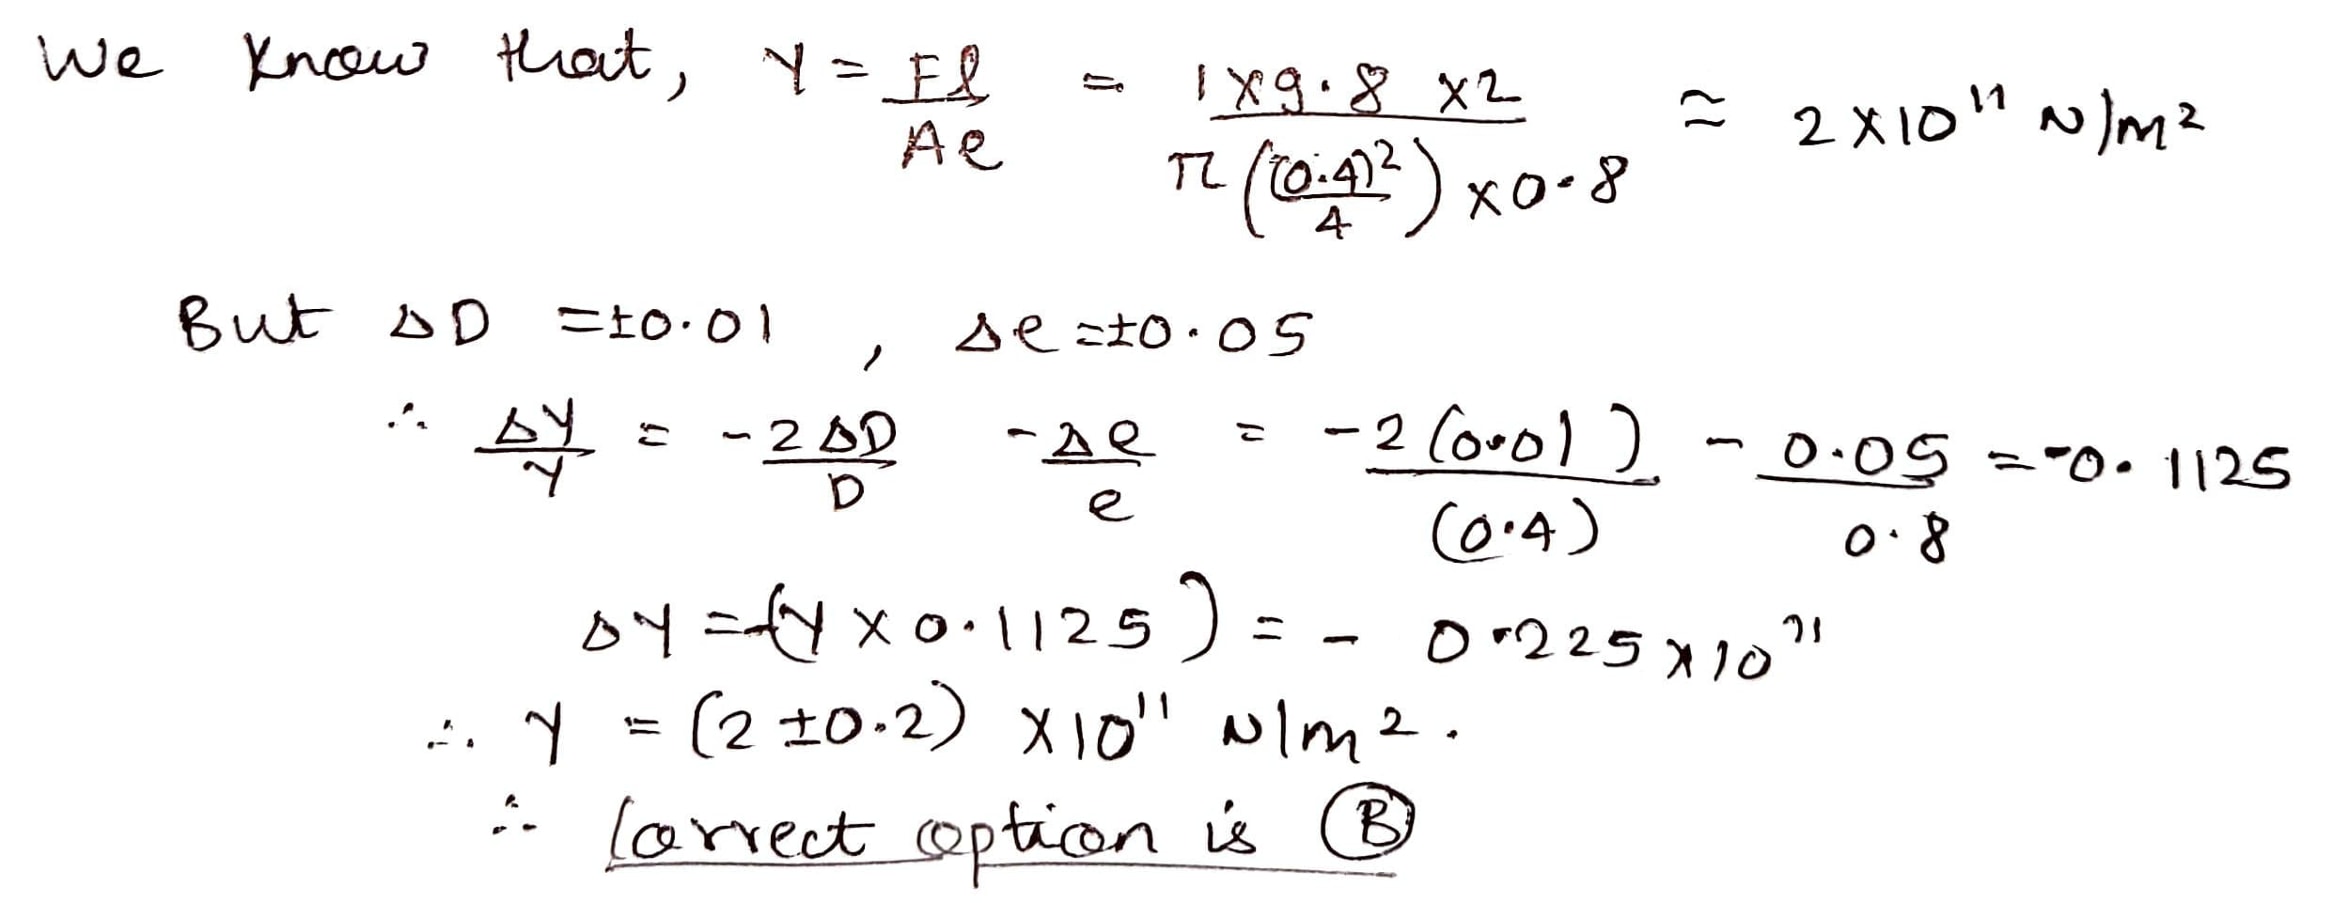 We know that, Y = Fl/Ae = 1×9.8×2/π((0.4)²/4)×0.8 ≃ 2×10¹¹ N/m²
But ΔD = ±0.01, Δe = ±0.05
∴ ΔY/Y = -2ΔD/D - Δe/e = -2(0.01)/(0.4) - 0.05/0.8 = -0.1125
ΔY = -(Y × 0.1125) = - 0.225×10¹¹
∴ Y = (2 ± 0.2) × 10¹¹ N/m².
∴ Correct option is B